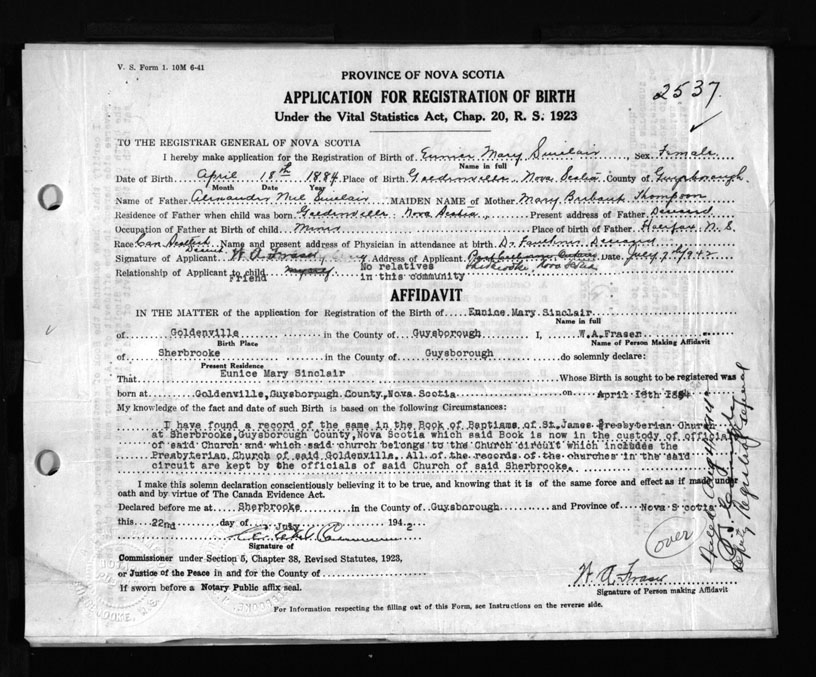 V. S. Form 1. 10M 6-41
PROVINCE OF NOVA SCOTIA
2537
APPLICATION FOR REGISTRATION OF BIRTH
Under the Vital Statistics Act, Chap. 20, R. S. 1923
TO THE REGISTRAR GENERAL OF NOVA SCOTIA
I hereby make application for the Registration of Birth of Eunice Mary Sinclair, Sex Female
Name in full
Date of Birth April 18th 1884 Place of Birth Goldenville Nova Scotia County of Guysborough
Month Date Year
Name of Father Alexander Neil Sinclair MAIDEN NAME of Mother Mary Thompson
Residence of Father when child was born Goldenville Nova Scotia, Present address of Father Deceased
Occupation of Father at Birth of child Miner Place of birth of Father Halifax N. S.
Race Can Scottish Descent Name and present address of Physician in attendance at birth. Dr. Deceased
Signature of Applicant W A Fraser Address of Applicant Sherbrooke, Nova Scotia Date July 1942
Relationship of Applicant to child myself No relatives
Friend in this community
AFFIDAVIT
IN THE MATTER of the application for Registration of the Birth of Eunice Mary Sinclair
Name in full
of Goldenville in the County of Guysborough I, W.A.Fraser
Birth Place Name of Person Making Affidavit
of Sherbrooke in the County of Guysborough do solemnly declare:
Present Residence
That Eunice Mary Sinclair Whose Birth is sought to be registered was
born at Goldenville, Guysborpugh County, Nova Scotia on April 18th 1884
My knowledge of the fact and date of such Birth is based on the following Circumstances:
I have found a record of the same in the Book of Baptisms of St. James Presbyterian Church
at Sherbrooke, Guysborough County, Nova Scotia which said Book is now in the custody of official
of said Church and which said church belongs to the Church circuit which includes the
Presbyterian Church of said Goldenville. All of the records of the churches in the said
circuit are kept by the officials of said Church of said Sherbrooke.
I make this solemn declaration conscientiously believing it to be true, and knowing that it is of the same force and effect as if made under
oath and by virtue of The Canada Evidence Act.
Declared before me at Sherbrooke in the County of Guysborough and Province of Nova Scotia
this 22nd day of July 1942
Signature of
Commissioner under Section 5, Chapter 38, Revised Statutes, 1923,
or Justice of the Peace in and for the County of
If sworn before a Notary Public affix seal.
over
W. A. Fraser
Signature of Person making Affidavit
Deputy Registrar General
For Information respecting the filling out of this Form, see Instructions on the reverse side.